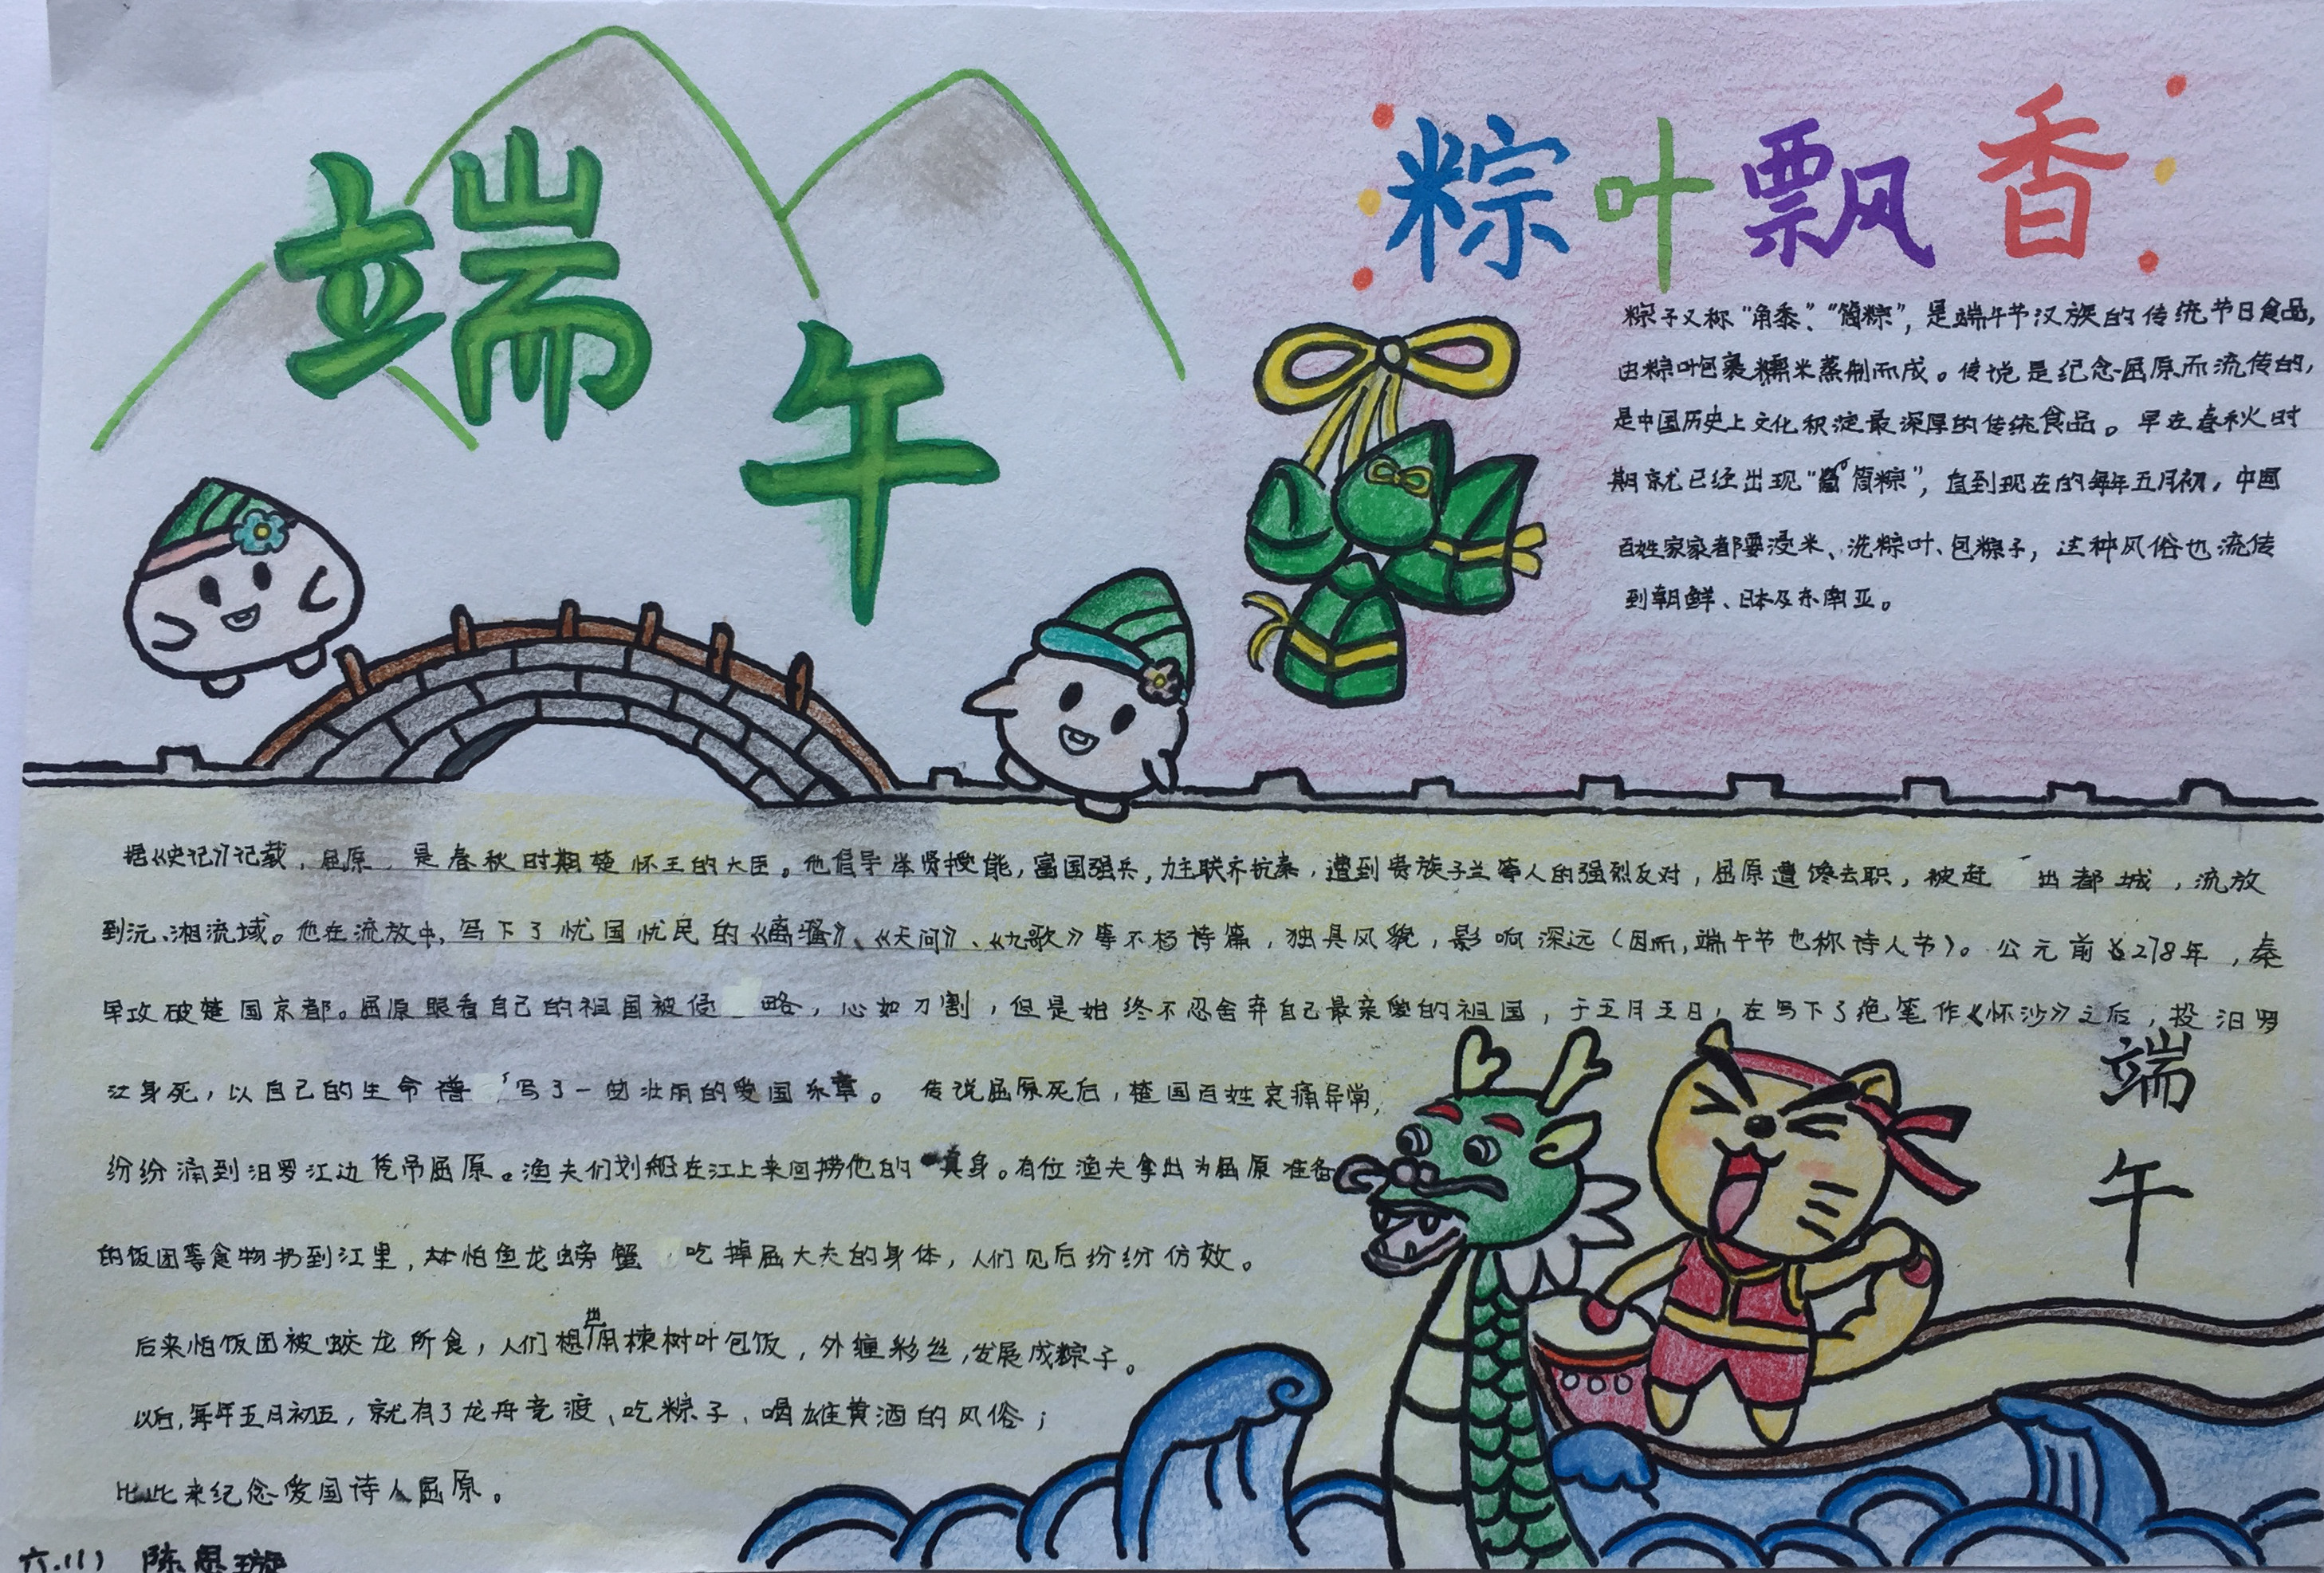 端午
粽叶飘香
粽子又称“角黍”、“筒粽”，是端午节汉族的传统节日食品，
由粽叶包裹糯米蒸制而成。传说是纪念屈原而流传的，
是中国历史上文化积淀最深厚的传统食品。早在春秋时
期就已经出现“筒粽”，直到现在的每年五月初，中国
百姓家家都要浸米、洗粽叶、包粽子，这种风俗也流传
到朝鲜、日本及东南亚。
据《史记》记载，屈原，是春秋时期楚怀王的大臣。他倡导举贤授能，富国强兵，力主联齐抗秦，遭到贵族子兰等人的强烈反对，屈原遭馋去职，被赶出都城，流放
到沅、湘流域。他在流放中，写下了忧国忧民的《离骚》、《天问》、《九歌》等不杨诗篇，独具风貌，影响深远（因而，端午节也称诗人节）。公元前278年，秦
军攻破楚国京都。屈原眼看自己的祖国被侵略，心如刀割，但是始终不忍舍弃自己最亲爱的祖国，于五月五日，在写下了绝笔作《怀沙》之后，投汨罗
江身死，以自己的生命谱写了一曲壮丽的爱国乐章。传说屈原死后，楚国百姓哀痛异常，
纷纷涌到汨罗江边凭吊屈原。渔夫们划船在江上来回捞他的真身。有位渔夫拿出为屈原准备
的饭团等食物扔到江里，怕鱼龙螃蟹吃掉屈大夫的身体，人们见后纷纷仿效。
后来怕饭团被蛟龙所食，人们想出用楝树叶包饭，外缠彩丝，发展成粽子。
以后，每年五月初五，就有了龙舟竞渡、吃粽子、喝雄黄酒的风俗；
比此来纪念爱国诗人屈原。
端
午
六.(1) 陈思璇